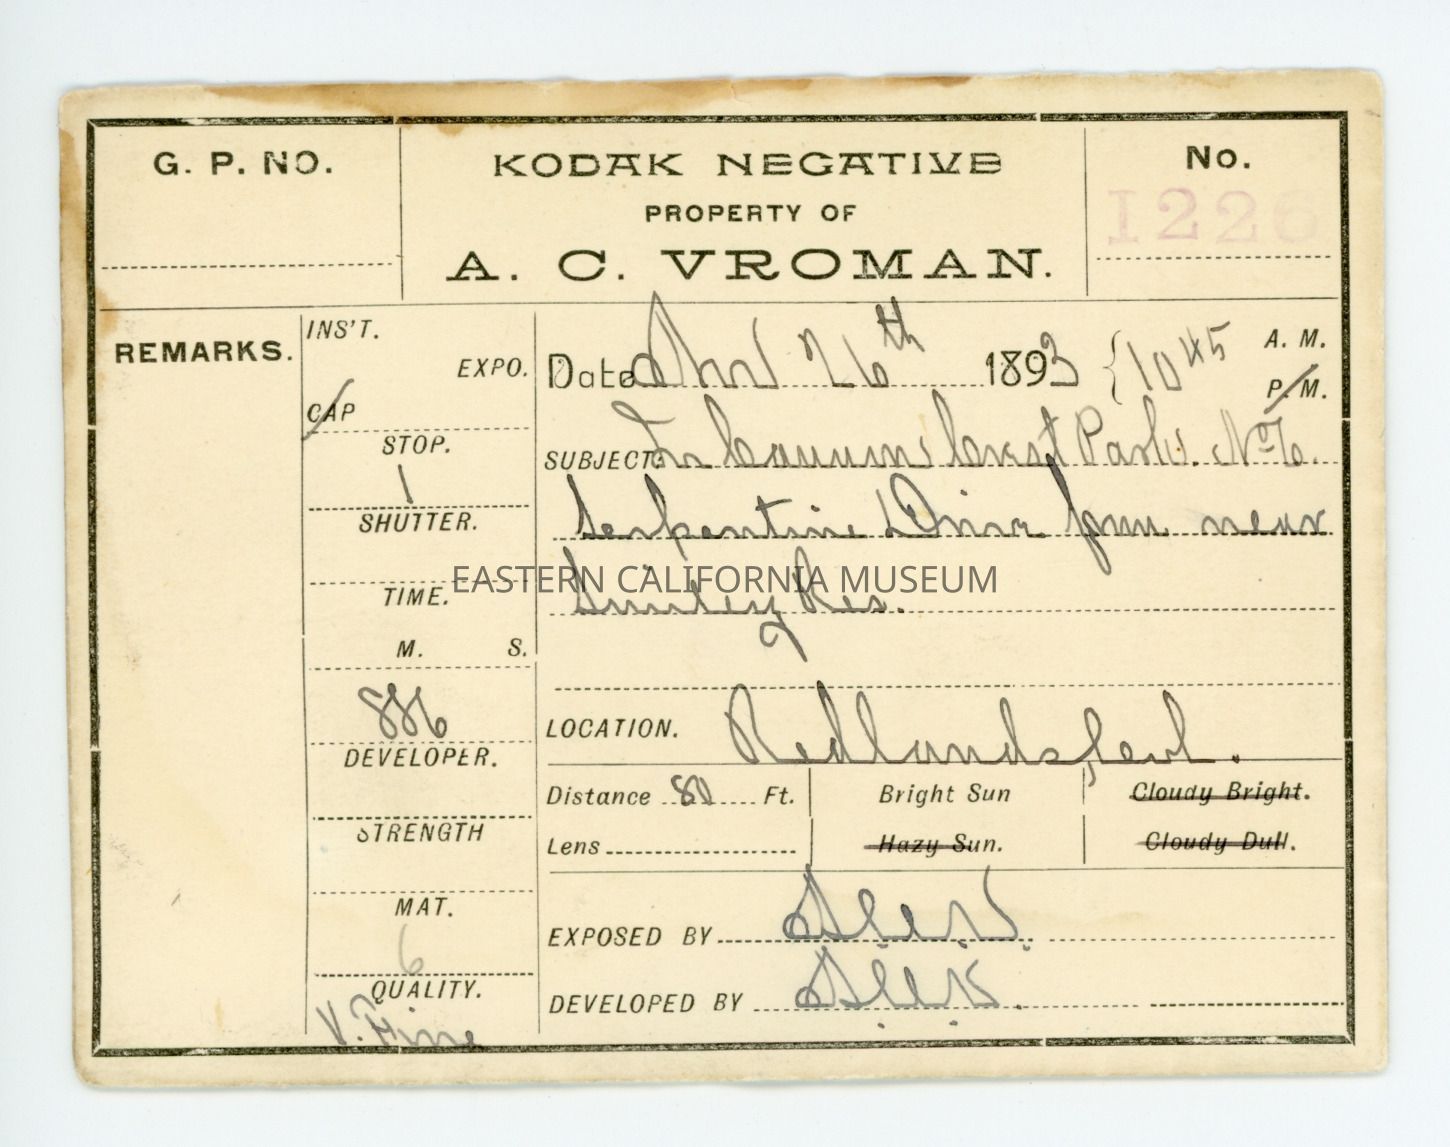 G. P. NO.
KODAK NEGATIVE
PROPERTY OF
A. C. VROMAN.
No.
1226
REMARKS.
INS'T.
EXPO.
CAP
STOP.
1
SHUTTER.
TIME.
M. S.
886
DEVELOPER.
STRENGTH
MAT.
6
QUALITY.
V. Fine
Date Nov 26th 1893 { 10 45 A. M.
P. M.
SUBJECT. In Canyon Crest Park. No 6.
Serpentine Drive from near
Smiley Res.
EASTERN CALIFORNIA MUSEUM
LOCATION. Redlands, Cal.
Distance 80 Ft. Bright Sun Cloudy Bright.
Lens Hazy Sun. Cloudy Dull.
EXPOSED BY
DEVELOPED BY